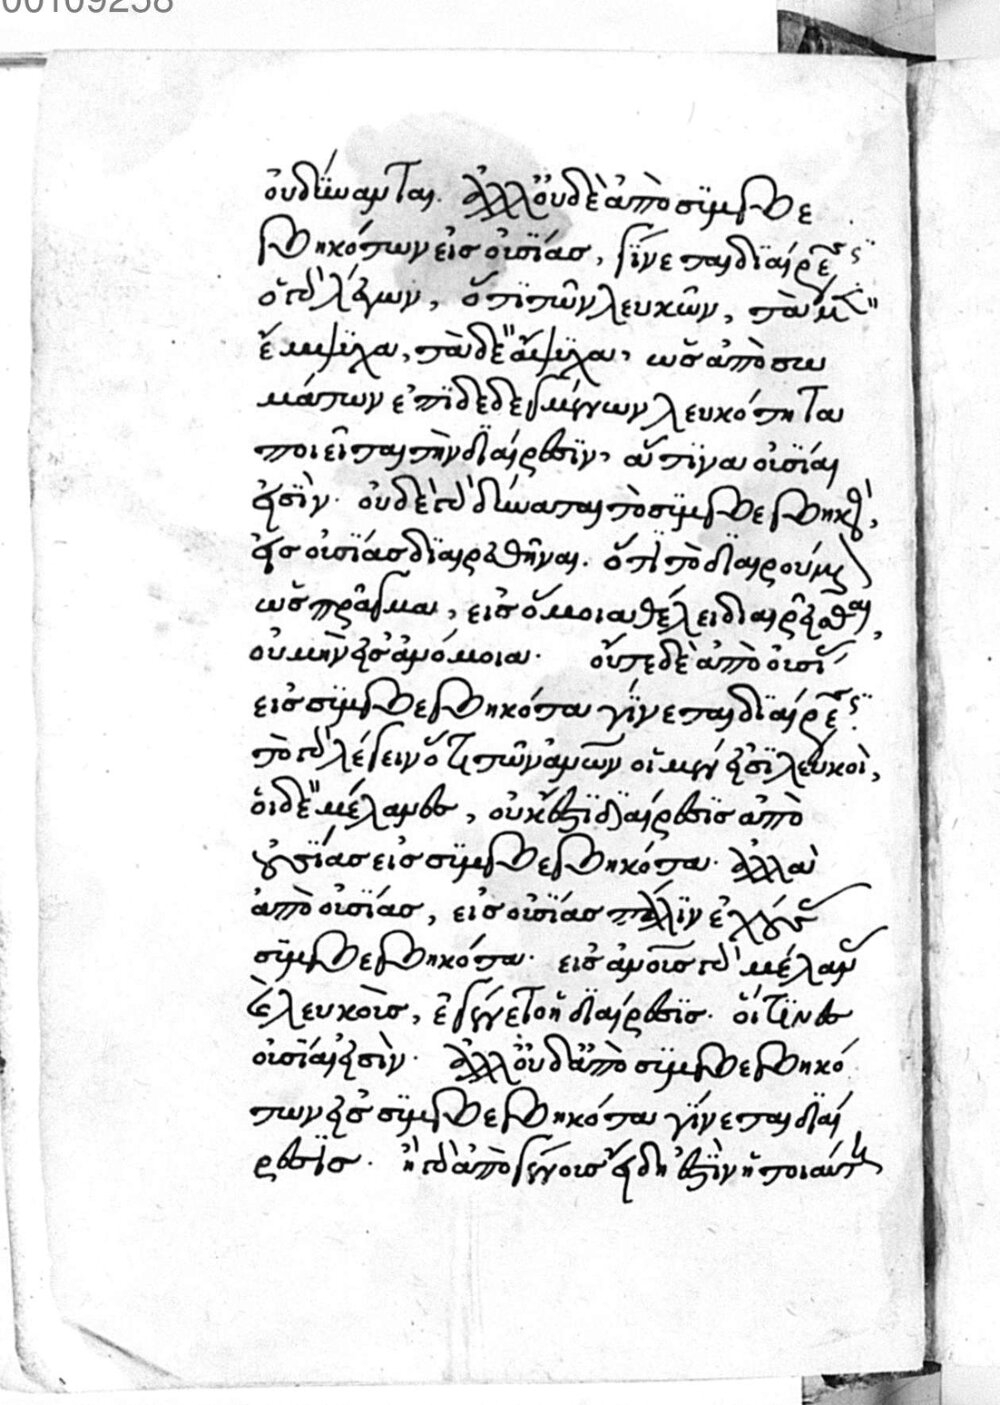 00109258
οὐδύναμται. ἀλλ' οὐδὲ ἀπὸ σϋμβε
βηκότων εἰσ οὐσίας, γίνεται διαίρεσϊς
ὁ τὸ λέγων, ὅτι τῶν λευκῶν, τὰ μὲν
ἔμψϋχα, τὰ δὲ ἄψϋχα, ὡσ ἀπὸ σω
μάτων ἐπϊδεδεγμένων λευκότητα
ποιεῖται τὴν διαίρεσϊν, ἅτϊνα οὐσίαι
εἰσὶν. οὐδὲ τὸ δύναται τὸ σϋμβεβηκὸς,
εἰσ οὐσίας διαιρεθῆναι. ὅτι τὸ διαιρούμενον
ὡσ πρᾶγμα, εἰσ ὅμοια θέλει διαιρεῖσθαι,
οὐ μὴν εἰσ ἀνόμοια. οὔτε δὲ ἀπὸ οὐσίας
εἰσ σϋμβεβηκότα γίνεται διαίρεσϊς.
τὸ τὸ λέγειν ὅτι τῶν ἀνων οἱ μὲν εἰσϊ λευκοὶ,
οἱ δὲ μέλανες, οὐκ ἔστϊ διαίρεσϊς ἀπὸ
οὐσίας εἰσ σϋμβεβηκότα. ἀλλὰ
ἀπὸ οὐσίας, εἰσ οὐσίας πάλϊν ἐχούσας
σϋμβεβηκότα. εἰσ ἀνοὺσ τὸ μέλανας
καὶ λευκοὺσ, ἐγένετο ἡ διαίρεσϊς. οἵτϊνες
οὐσίαι εἰσὶν. ἀλλ' οὐδ' ἀπὸ σϋμβεβηκό
των εἰσ σϋμβεβηκότα γίνεται διαί
ρεσϊς. ἢ τὸ ἀπὸ γένους εἰσ εἴδη ἐστὶν ἡ τοιαύτη